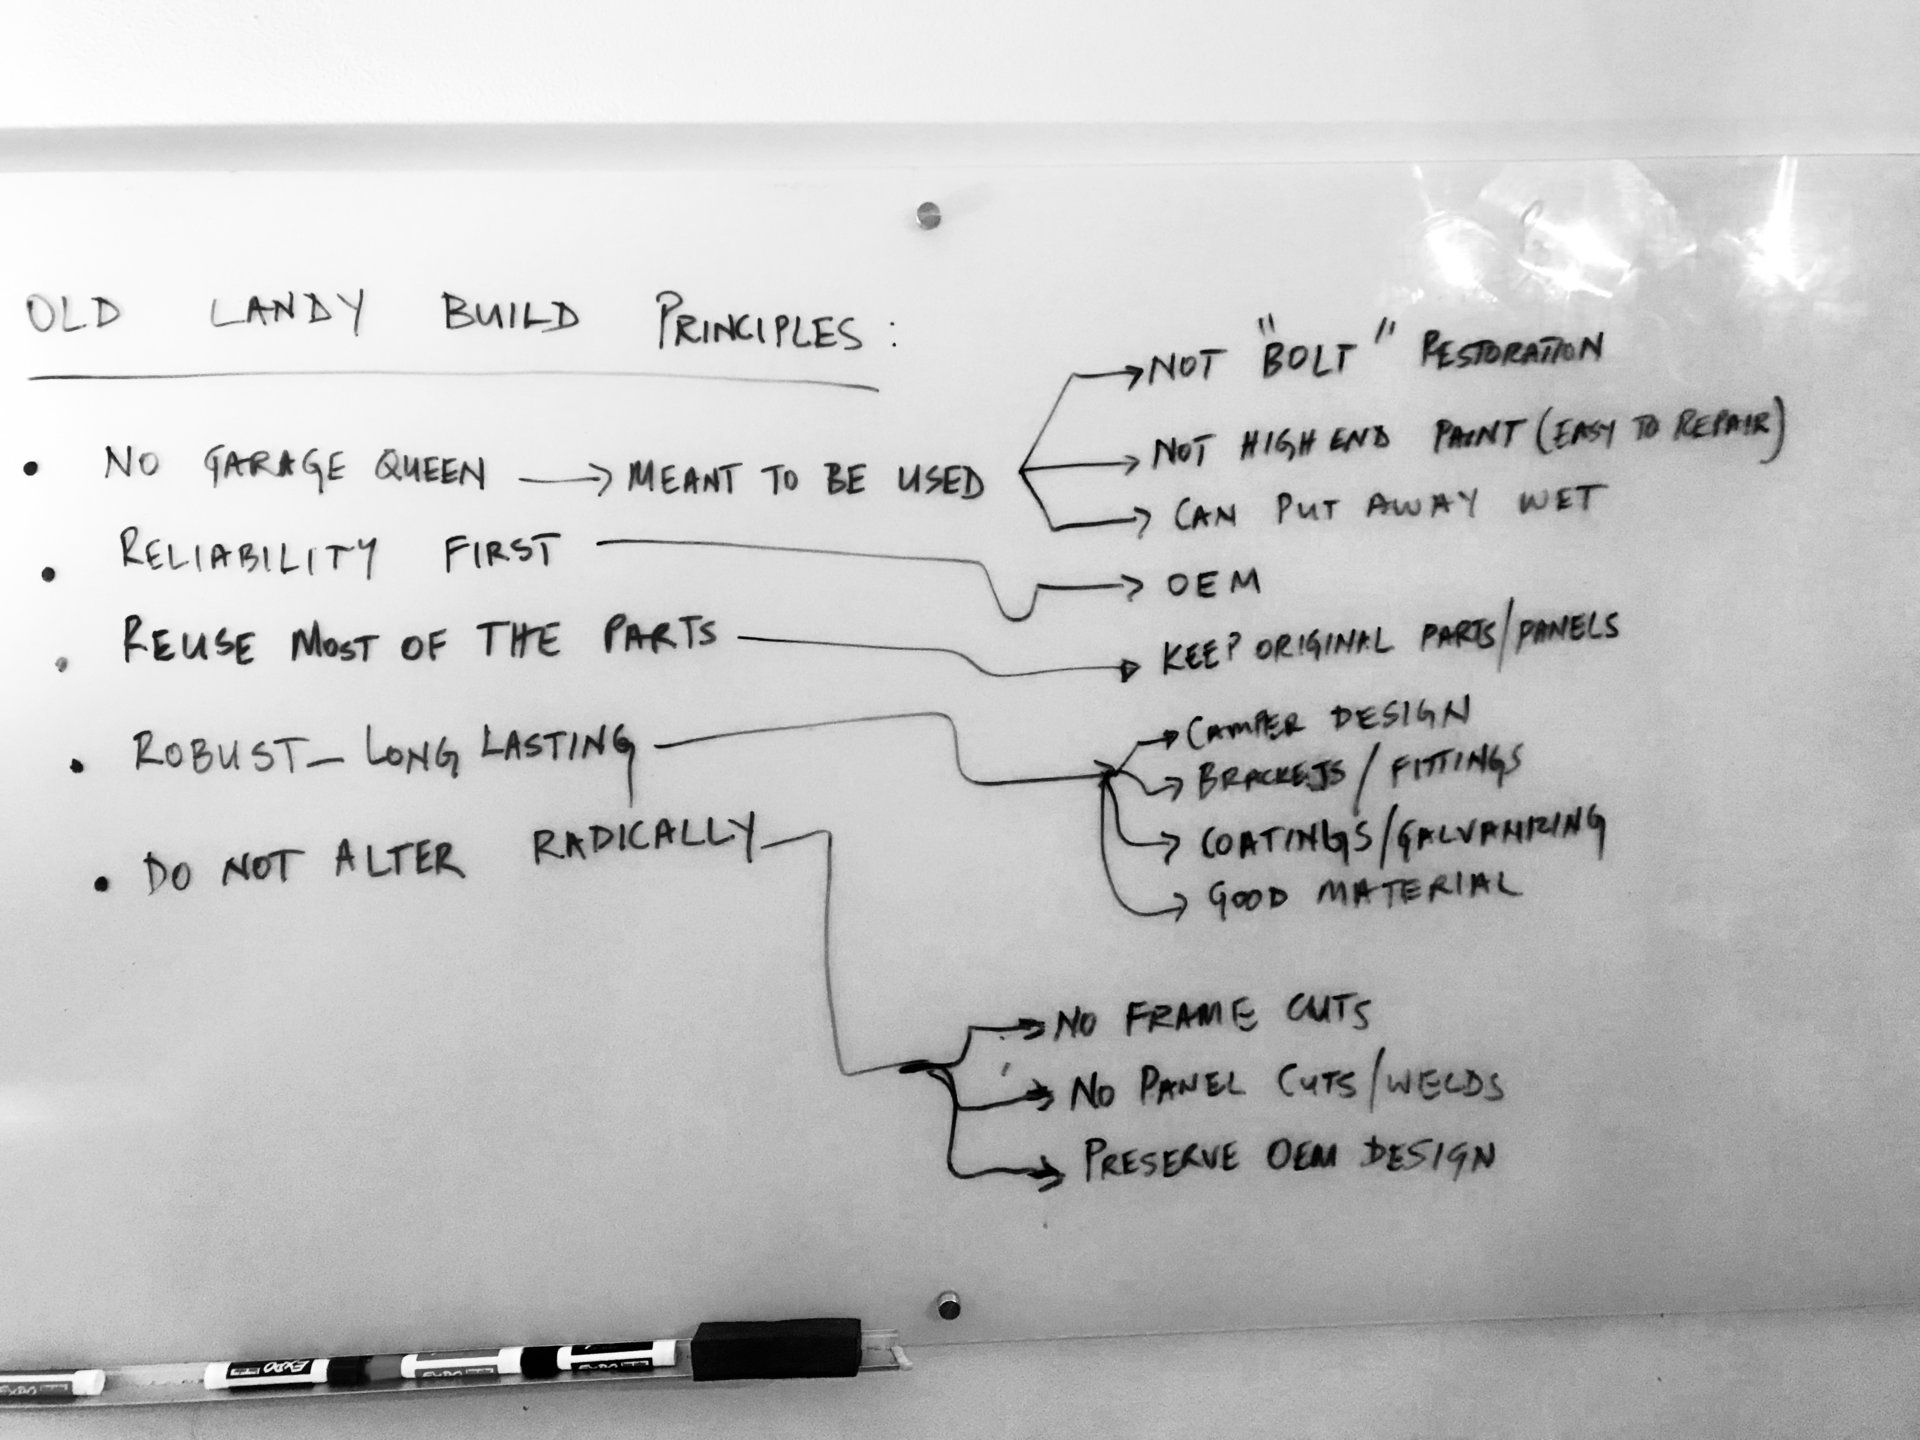 OLD LANDY BUILD PRINCIPLES:
• NO GARAGE QUEEN → MEANT TO BE USED
→ NOT "BOLT" RESTORATION
→ NOT HIGH END PAINT (EASY TO REPAIR)
→ CAN PUT AWAY WET
• RELIABILITY FIRST
→ OEM
• REUSE MOST OF THE PARTS
→ KEEP ORIGINAL PARTS/PANELS
• ROBUST - LONG LASTING
→ CAMPER DESIGN
→ BRACKETS / FITTINGS
→ COATINGS/GALVANIZING
→ GOOD MATERIAL
• DO NOT ALTER RADICALLY
→ NO FRAME CUTS
→ NO PANEL CUTS/WELDS
→ PRESERVE OEM DESIGN
EXPO
EXPO
EXPO
EXPO